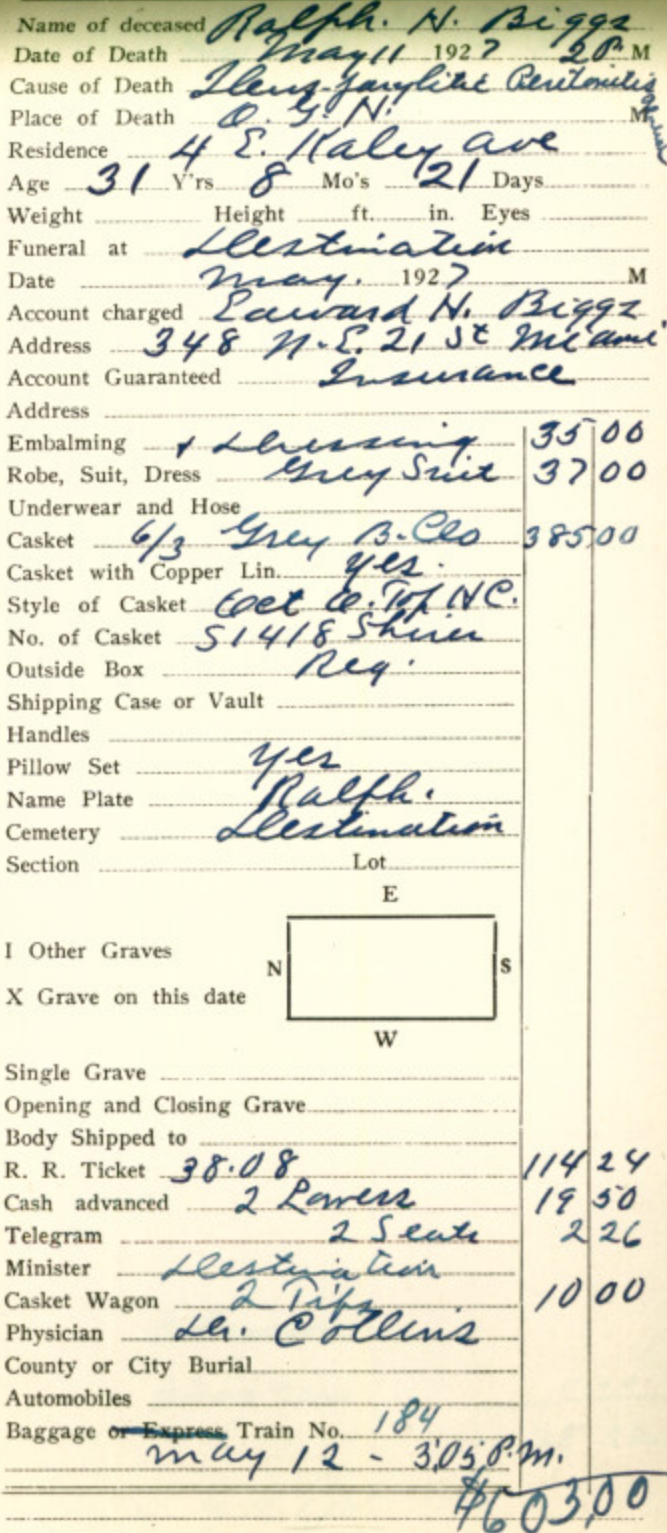 Name of deceased Ralph. H. Biggs
Date of Death May 11 1927 2 P. M
Cause of Death Ileus-paralitic Peritonitis
Place of Death O. G. H. M
Residence 4 E. Kaley Ave
Age 31 Y'rs 8 Mo's 21 Days
Weight Height ft. in. Eyes
Funeral at Destination
Date May. 1927 M
Account charged Edward H. Biggs
Address 348 N.E. 21 St Miami
Account Guaranteed Insurance
Address
Embalming + Dressing 35 00
Robe, Suit, Dress Grey Suit 37 00
Underwear and Hose
Casket 6/3 Grey B. Clo 385 00
Casket with Copper Lin. yes.
Style of Casket Oct O. Top HC.
No. of Casket S1418
Outside Box Reg.
Shipping Case or Vault
Handles
Pillow Set yes
Name Plate Ralph.
Cemetery Destination
Section Lot
E
I Other Graves
N S
X Grave on this date
W
Single Grave
Opening and Closing Grave
Body Shipped to
R. R. Ticket 38.08 114 24
Cash advanced 2 Lowers 19 50
Telegram 2 Seats 2 26
Minister Destination
Casket Wagon 2 Tips 10 00
Physician Dr. Collins
County or City Burial
Automobiles
Baggage or Express Train No. 184
May 12 - 3,05 P.M.
$603,00